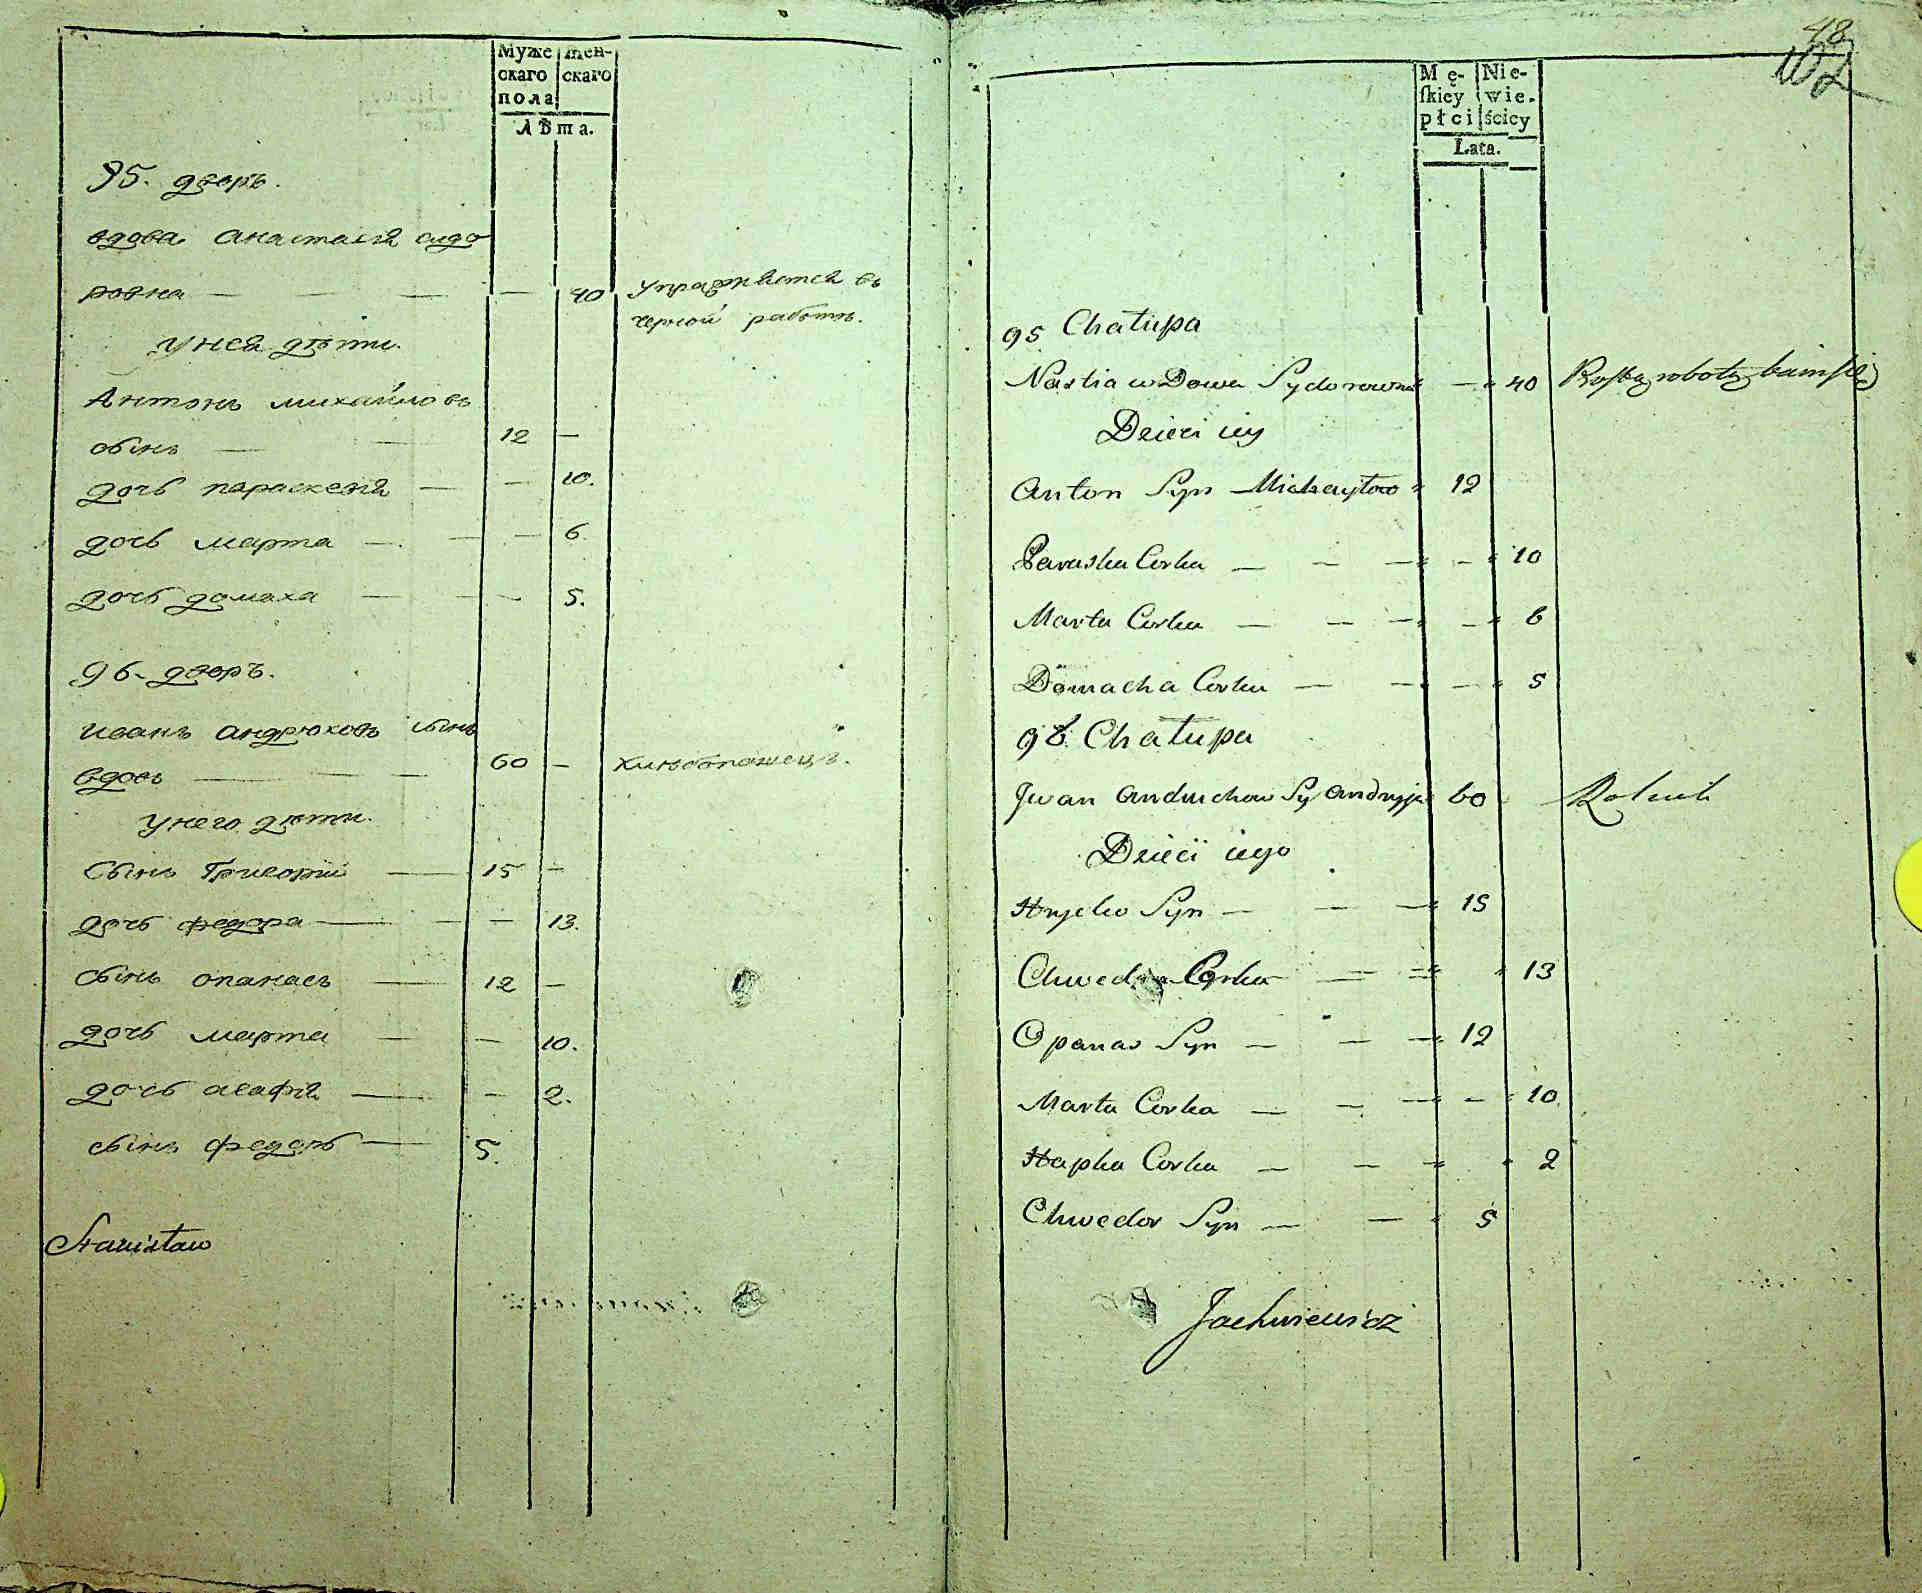 Муже
скаго
пола
жен-
скаго
Лѣта.
95. дворъ.
вдова анастасія сидо
ровна — — — — 40 упражняется въ
черной работѣ.
у нея дѣти.
Антонъ михайловъ
сынъ — — 12 —
дочь параскевія — — 10.
дочь марта — — — 6
дочь домаха — — — 5.
96- дворъ.
иванъ андрюховъ сынъ
вдовъ — — — 60 — хлѣбопашецъ.
у него дѣти.
Сынъ Григорій — 15 —
дочь федора — — — 13.
сынъ опанасъ — 12 —
дочь марта — — 10.
дочь агафія — — 2.
сынъ федоръ — 5.
Stanisław
48
102
Mę-
skiey
płci
Nie-
wie-
ścicy
Lata.
95 Chałupa
Nastia wDowa Sydorowna — 40
Dzieci iey
Anton Syn Michayłow 12
Paraska Corka — — — — 10
Marta Corka — — — — 6
Domacha Corka — — — 5
96. Chałupa
Iwan Andruchow Sy 60 Rolnik
Dzieci iego
Hrycko Syn — — — 15
Chwedora Corka — — 13
Opanas Syn — — — 12
Marta Corka — — — — 10
Hapka Corka — — — 2
Chwedor Syn — — 5
Jachniewicz